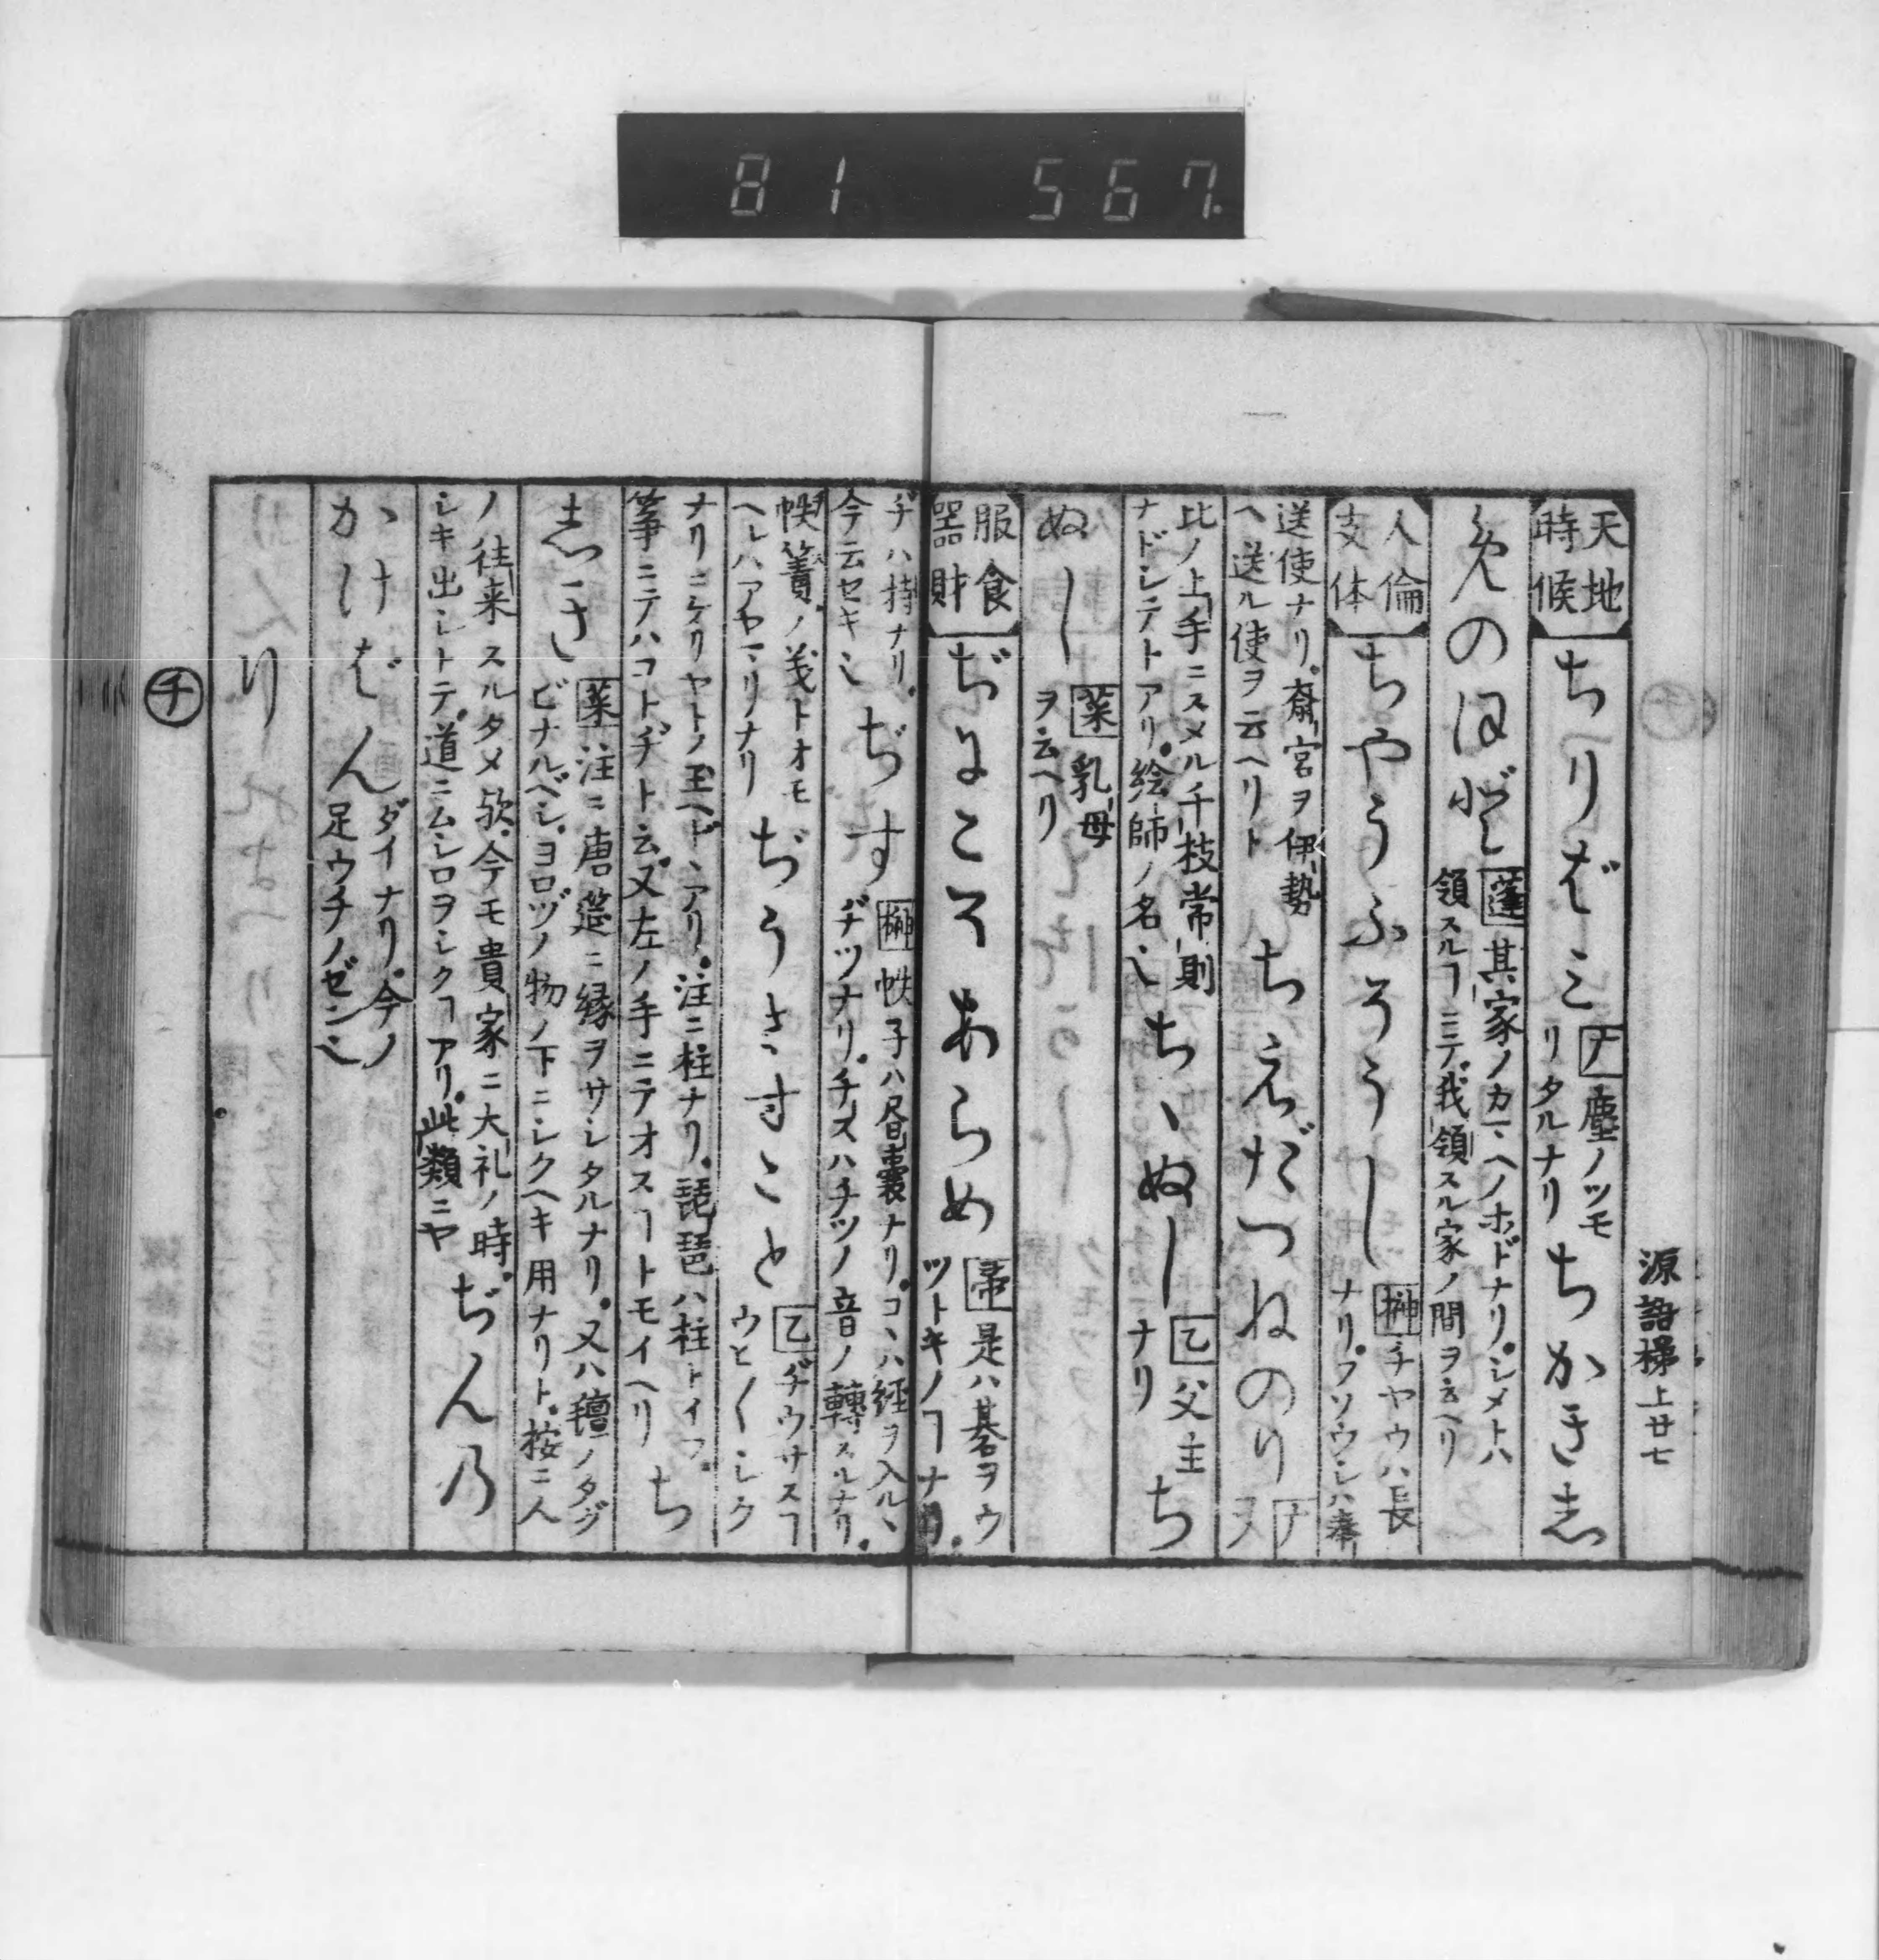 81 567
源語梯上廿七
天地時候 ちりばミ ナ 塵ノツモリタルナリ ちかきし
めのほど 蓬 其家ノカマヘノホドナリ。シメトハ領スルヿニテ。我領スル家ノ間ヲ云ヘリ
人倫支体 ちやうふそうし 榊 チヤウハ長ナリ。フソウシハ奉
送使ナリ。斎宮ヲ伊勢ヘ送ル使ヲ云ヘリト ちえだつねのり ナ 又
比ノ上手ニスメル千枝常則ナドシテトアリ。絵師ノ名也 ちゝぬし 乙 父主ナリ ち
ぬし 菜 乳母ヲ云ヘリ
服食器財 ぢにこそあらめ 帚 是ハ碁ヲウツトキノヿナリ。
ヂハ持ナリ。今云セキ也 ぢす 榊 帙子ハ昼嚢ナリ。コヽハ経ヲ入ルヽヂツナリ。チスハチツノ音ノ轉スルナリ。
帙簀ノ義トオモヘレハアヤマリナリ ぢうさすこと 乙 ヂウサスヿウと〱シク
ナリニケリヤトノ玉ヘド、アリ。注ニ柱ナリ。琵琶ハ柱トイフ。箏ニテハコトヂト云。又左ノ手ニテオスヿトモイヘリ ち
しき 菜 注ニ唐莚ニ縁ヲサシタルナリ。又ハ氈ノタグビナルベシ。ヨロヅノ物ノ下ニシクヘキ用ナリト。按ニ人
ノ往来スルタメ歟。今モ貴家ニ大礼ノ時。シキ出シトテ。道ニムシロヲシクヿアリ。此類ニヤ ぢん乃
かけばん ダイナリ。今ノ足ウチノゼン也
り
チ